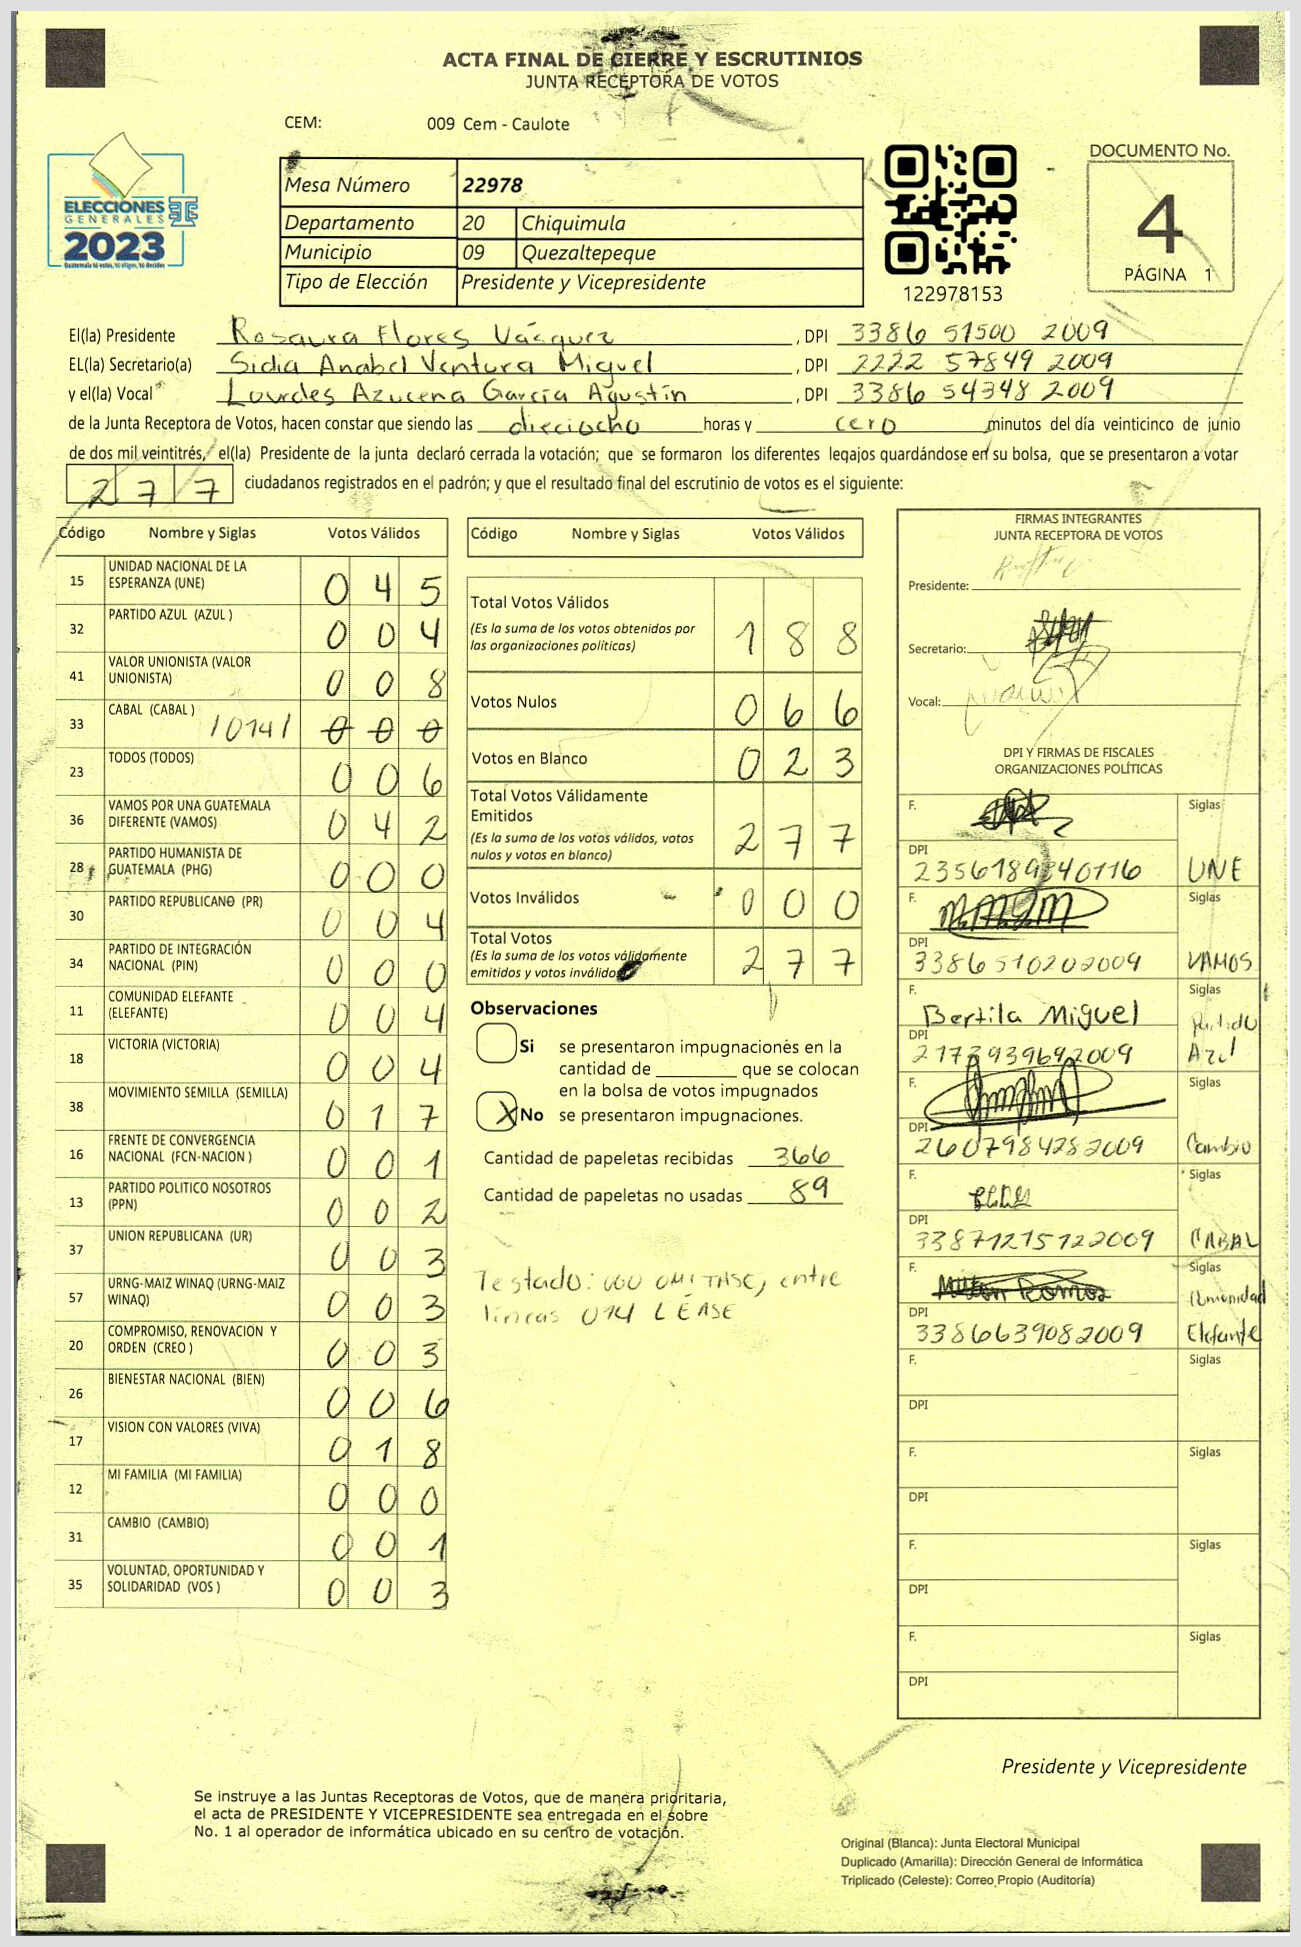 ACTA FINAL DE CIERRE Y ESCRUTINIOS
JUNTA RECEPTORA DE VOTOS
CEM: 009 Cem - Caulote
ELECCIONES
GENERALES
2023
Guatemala tú votes, tú eliges, tú decides
Mesa Número 22978
Departamento 20 Chiquimula
Municipio 09 Quezaltepeque
Tipo de Elección Presidente y Vicepresidente
122978153
DOCUMENTO No.
4
PÁGINA 1
El(la) Presidente Rosaura Flores Vásquez, DPI 3386 51500 2009
EL(la) Secretario(a) Sidia Anabel Ventura Miguel, DPI 2222 57849 2009
y el(la) Vocal Lourdes Azucena García Agustín, DPI 3386 54348 2009
de la Junta Receptora de Votos, hacen constar que siendo las dieciocho horas y cero minutos del día veinticinco de junio
de dos mil veintitrés, el(la) Presidente de la junta declaró cerrada la votación; que se formaron los diferentes legajos guardándose en su bolsa, que se presentaron a votar
277 ciudadanos registrados en el padrón; y que el resultado final del escrutinio de votos es el siguiente:
Código Nombre y Siglas Votos Válidos
15 UNIDAD NACIONAL DE LA ESPERANZA (UNE) 045
32 PARTIDO AZUL (AZUL ) 004
41 VALOR UNIONISTA (VALOR UNIONISTA) 008
33 CABAL (CABAL ) /014/ 000
23 TODOS (TODOS) 006
36 VAMOS POR UNA GUATEMALA DIFERENTE (VAMOS) 042
28 PARTIDO HUMANISTA DE GUATEMALA (PHG) 000
30 PARTIDO REPUBLICANO (PR) 004
34 PARTIDO DE INTEGRACIÓN NACIONAL (PIN) 000
11 COMUNIDAD ELEFANTE (ELEFANTE) 004
18 VICTORIA (VICTORIA) 004
38 MOVIMIENTO SEMILLA (SEMILLA) 017
16 FRENTE DE CONVERGENCIA NACIONAL (FCN-NACION ) 001
13 PARTIDO POLITICO NOSOTROS (PPN) 002
37 UNION REPUBLICANA (UR) 003
57 URNG-MAIZ WINAQ (URNG-MAIZ WINAQ) 003
20 COMPROMISO, RENOVACION Y ORDEN (CREO ) 003
26 BIENESTAR NACIONAL (BIEN) 006
17 VISION CON VALORES (VIVA) 018
12 MI FAMILIA (MI FAMILIA) 000
31 CAMBIO (CAMBIO) 001
35 VOLUNTAD, OPORTUNIDAD Y SOLIDARIDAD (VOS ) 003
Código Nombre y Siglas Votos Válidos
Total Votos Válidos 188
(Es la suma de los votos obtenidos por
las organizaciones políticas)
Votos Nulos 066
Votos en Blanco 023
Total Votos Válidamente
Emitidos 277
(Es la suma de los votos válidos, votos
nulos y votos en blanco)
Votos Inválidos 000
Total Votos 277
(Es la suma de los votos válidamente
emitidos y votos inválidos)
Observaciones
Si se presentaron impugnaciones en la
cantidad de ________ que se colocan
en la bolsa de votos impugnados
X No se presentaron impugnaciones.
Cantidad de papeletas recibidas 366
Cantidad de papeletas no usadas 89
Testado: 000 OMITASE, entre
líneas 014 LÉASE
FIRMAS INTEGRANTES
JUNTA RECEPTORA DE VOTOS
Presidente:
Secretario:
Vocal:
DPI Y FIRMAS DE FISCALES
ORGANIZACIONES POLÍTICAS
F. Siglas
DPI
2356189340116 UNE
F. Siglas
DPI
3386510202009 VAMOS
F. Bertila Miguel Siglas
DPI Partido
2173939692009 Azul
F. Siglas
DPI
2607984282009 Cambio
F. Siglas
DPI
33871215122009 CABAL
F. Milton Ramos Siglas
DPI Comunidad
3386639082009 Elefante
F. Siglas
DPI
F. Siglas
DPI
F. Siglas
DPI
F. Siglas
DPI
Presidente y Vicepresidente
Se instruye a las Juntas Receptoras de Votos, que de manera prioritaria,
el acta de PRESIDENTE Y VICEPRESIDENTE sea entregada en el sobre
No. 1 al operador de informática ubicado en su centro de votación.
Original (Blanca): Junta Electoral Municipal
Duplicado (Amarilla): Dirección General de Informática
Triplicado (Celeste): Correo Propio (Auditoría)